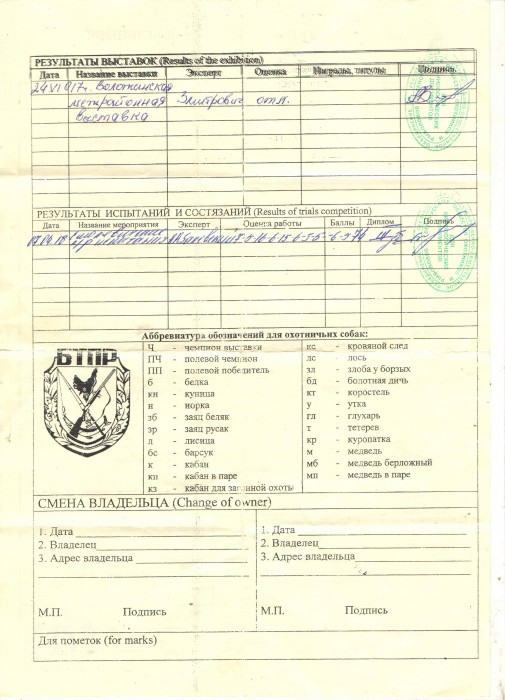 РЕЗУЛЬТАТЫ ВЫСТАВОК (Results of the exhibition)
Дата Название выставки Эксперт Оценка Награды, титулы Подпись
Воложинская
межрайонная Змитрович отл.
выставка
РЕЗУЛЬТАТЫ ИСПЫТАНИЙ И СОСТЯЗАНИЙ (Results of trials competition)
Дата Название мероприятия Эксперт Оценка работы Баллы Диплом Подпись
Аббревиатура обозначений для охотничьих собак:
БТПР
Ч - чемпион выставки
ПЧ - полевой чемпион
ПП - полевой победитель
б - белка
кн - куница
н - норка
зб - заяц беляк
зр - заяц русак
л - лисица
бс - барсук
к - кабан
кп - кабан в паре
кз - кабан для загонной охоты
кс - кровяной след
лс - лось
зл - злоба у борзых
бд - болотная дичь
кт - коростель
у - утка
гл - глухарь
т - тетерев
кр - куропатка
м - медведь
мб - медведь берложный
мп - медведь в паре
СМЕНА ВЛАДЕЛЬЦА (Change of owner)
1. Дата
2. Владелец
3. Адрес владельца
М.П. Подпись
1. Дата
2. Владелец
3. Адрес владельца
М.П. Подпись
Для пометок (for marks)